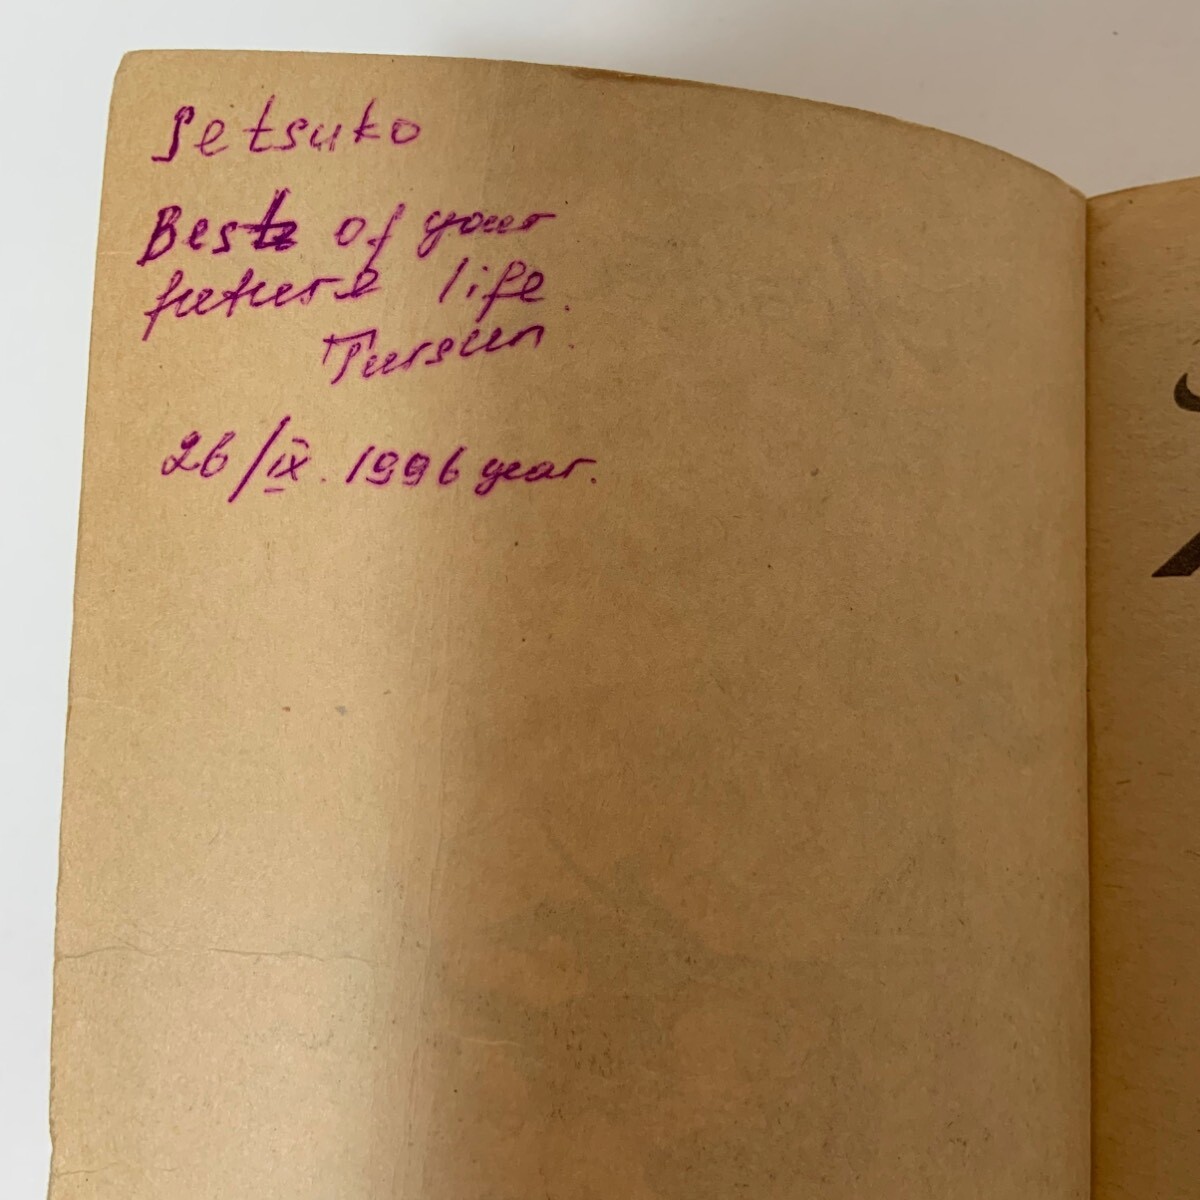 Setsuko
Best of your
future life.
Tursun
26/IX. 1996 year.